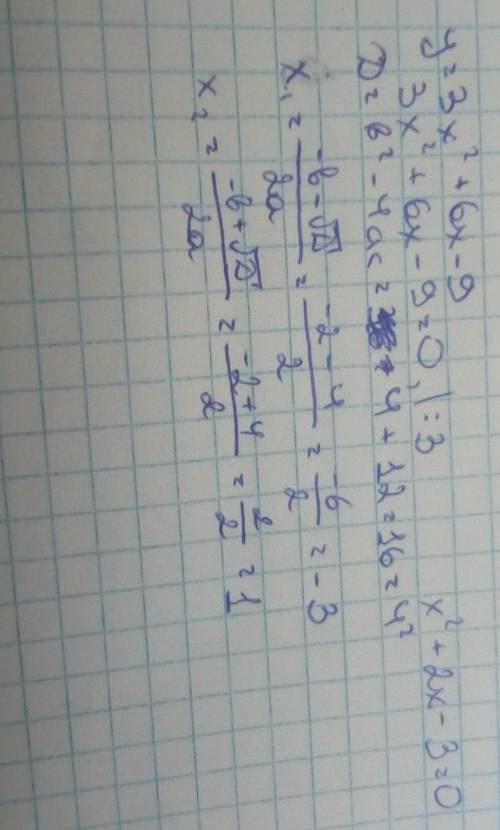 y = 3x² + 6x - 9
3x² + 6x - 9 = 0, | : 3 x² + 2x - 3 = 0
D = b² - 4ac = 4 + 12 = 16 = 4²
x₁ = (-b - √D)/2a = (-2 - 4)/2 = -6/2 = -3
x₂ = (-b + √D)/2a = (-2 + 4)/2 = 2/2 = 1